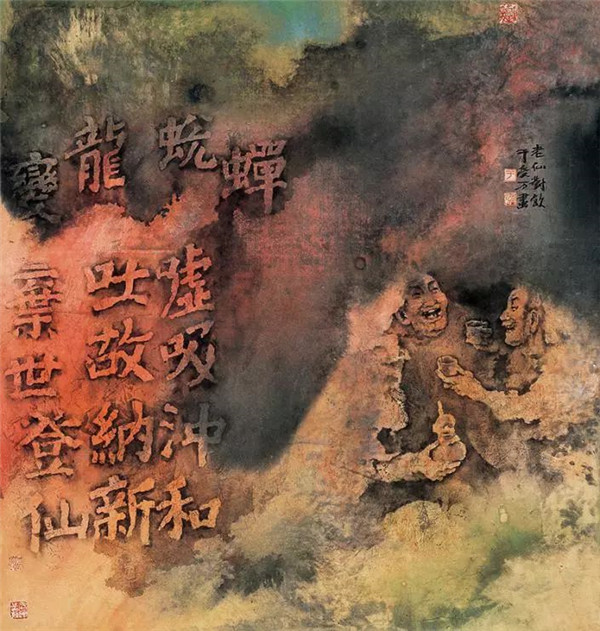 老仙對飲
于受万畫
蟬蛻龍變
嘘吸沖和
吐故納新
棄世登仙